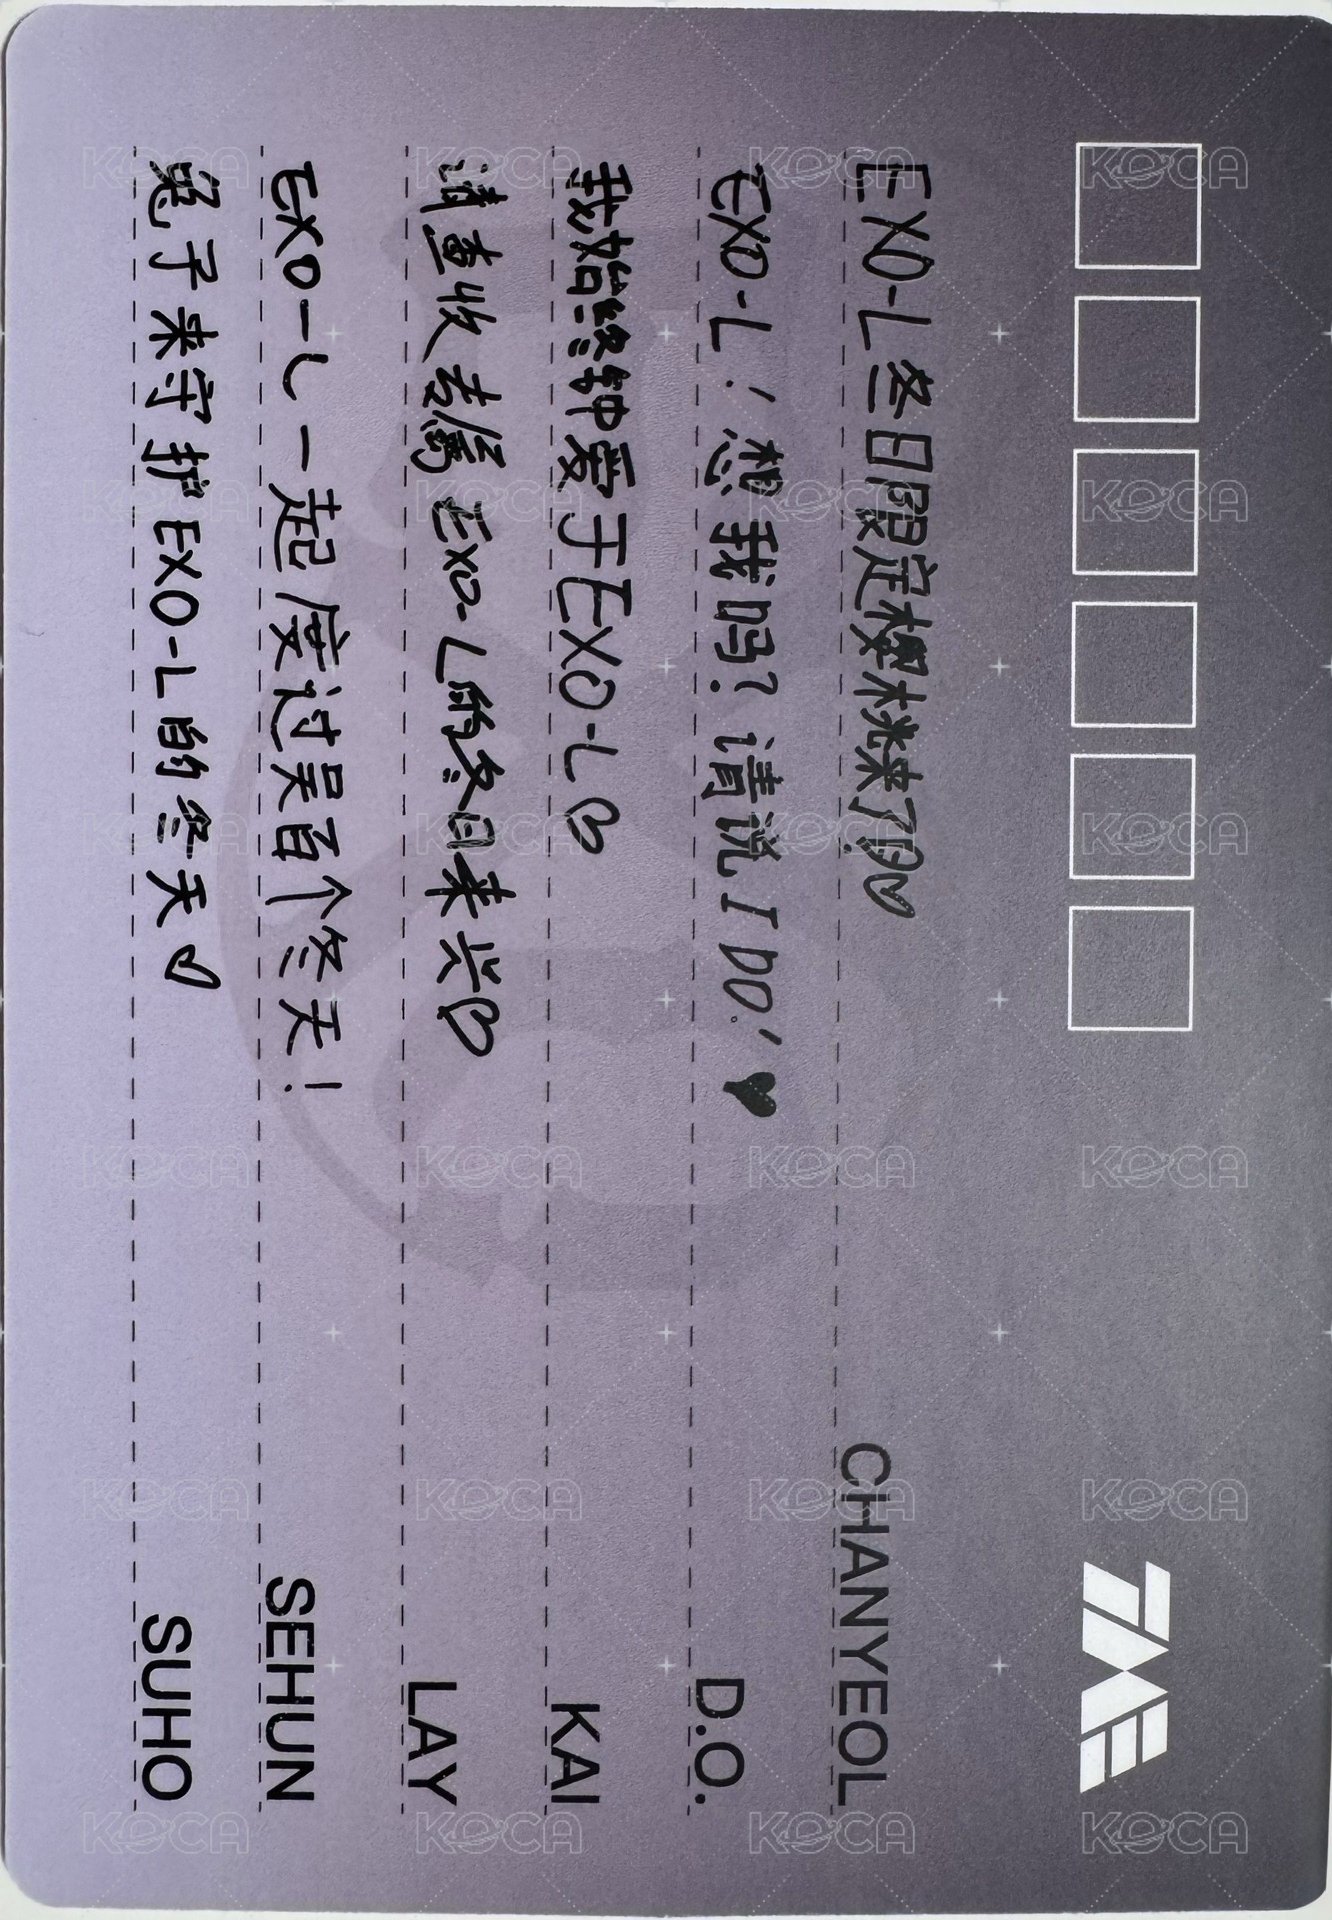 EXO-L冬日限定樱桃来了！♡
CHANYEOL
EXO-L！想我吗？请说I DO！♥
D.O.
我始终钟爱于EXO-L♡
KAI
请查收专属EXO-L的冬日来兴♡
LAY
EXO-L一起度过吴百个冬天！
SEHUN
兔子来守护EXO-L的冬天♡
SUHO
KOCA